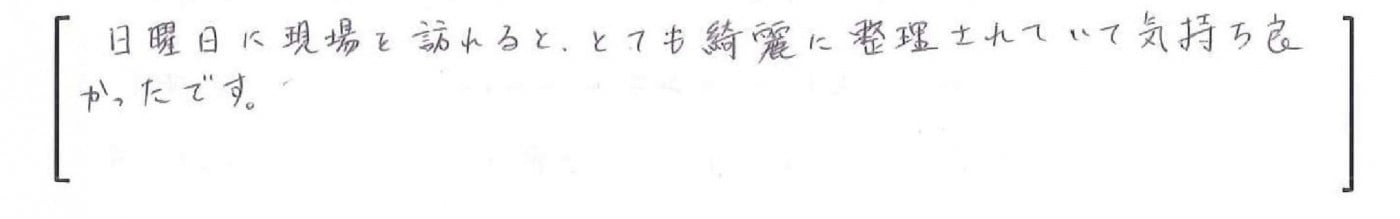 日曜日に現場を訪れると、とても綺麗に整理されていて気持ち良
かったです。